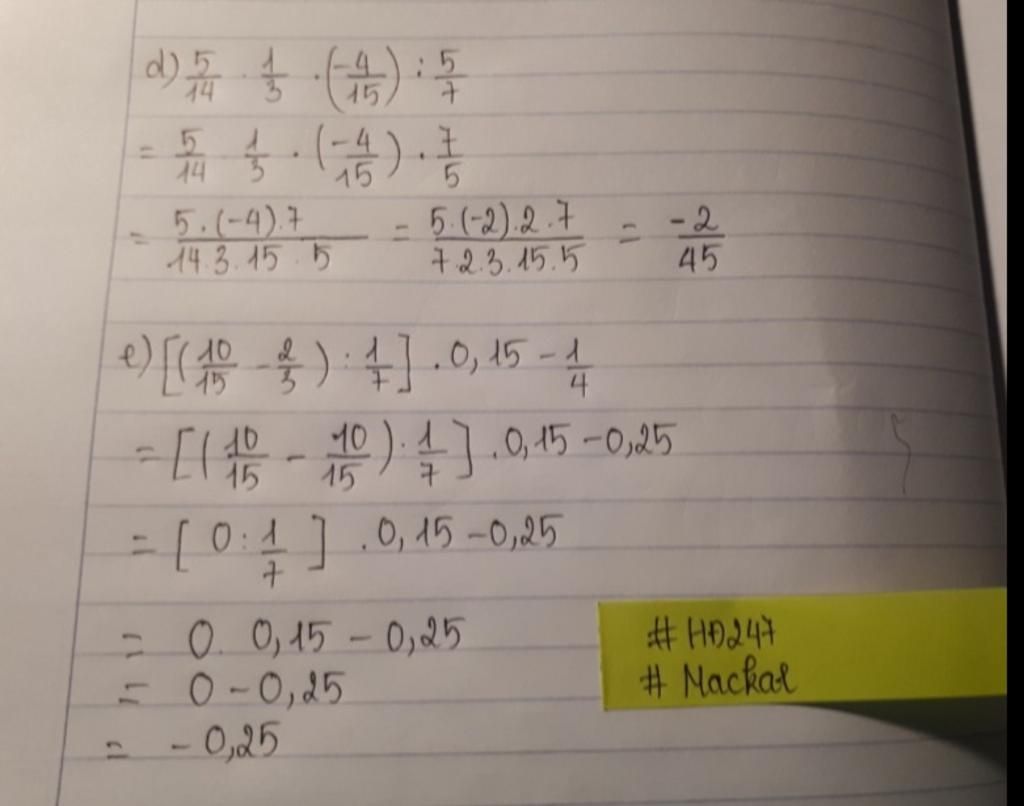 d) 5/14 . 1/3 . (-4/15) : 5/7
= 5/14 1/3 . (-4/15) . 7/5
= 5.(-4).7/14.3.15.5 = 5.(-2).2.7/7.2.3.15.5 = -2/45
e) [(10/15 - 2/3) : 1/7] . 0,15 - 1/4
= [(10/15 - 10/15) . 1/7] . 0,15 - 0,25
= [0 : 1/7] . 0,15 - 0,25
= 0. 0,15 - 0,25
= 0 - 0,25
= - 0,25
# HĐ247
# Mackar